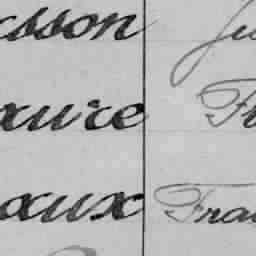 sson Ju
aure Fr
aux Fra